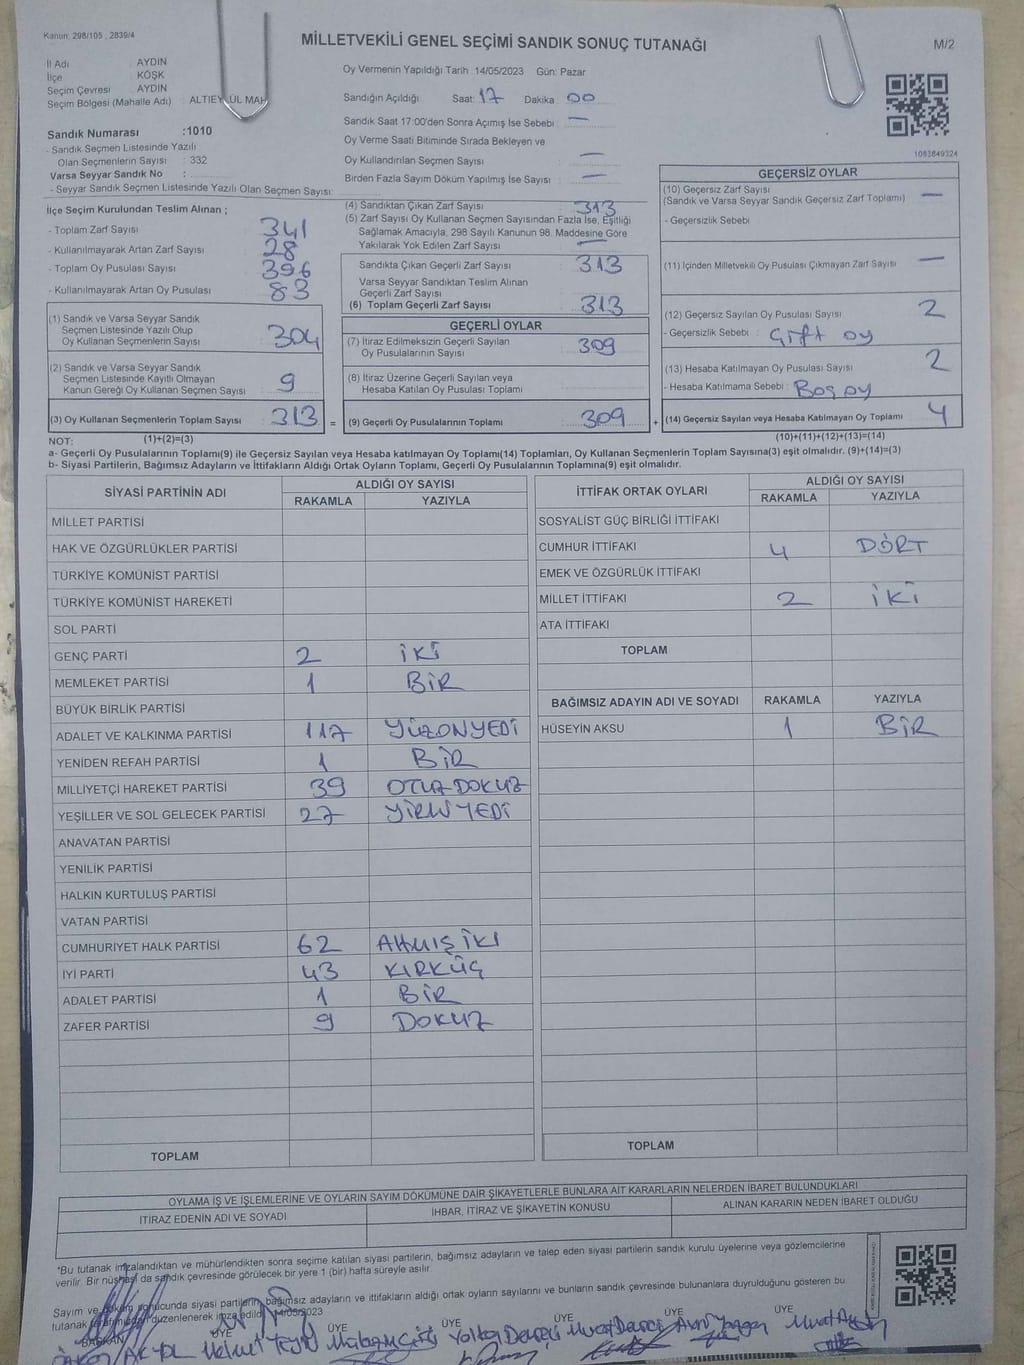 Kanun: 298/105 , 2839/4
MİLLETVEKİLİ GENEL SEÇİMİ SANDIK SONUÇ TUTANAĞI
M/2
İl Adı AYDIN
İlçe KÖŞK
Seçim Çevresi AYDIN
Seçim Bölgesi (Mahalle Adı) : ALTIEY ÜL MAH
Sandık Numarası :1010
- Sandık Seçmen Listesinde Yazılı
Olan Seçmenlerin Sayısı : 332
Varsa Seyyar Sandık No :
- Seyyar Sandık Seçmen Listesinde Yazılı Olan Seçmen Sayısı:
Oy Vermenin Yapıldığı Tarih :14/05/2023 Gün: Pazar
Sandığın Açıldığı Saat: 17 Dakika 00
Sandık Saat 17:00'den Sonra Açımış İse Sebebi : —
Oy Verme Saati Bitiminde Sırada Bekleyen ve
Oy Kullandırılan Seçmen Sayısı —
Birden Fazla Sayım Döküm Yapılmış İse Sayısı —
1083849324
İlçe Seçim Kurulundan Teslim Alınan ;
- Toplam Zarf Sayısı 341
- Kullanılmayarak Artan Zarf Sayısı 28
- Toplam Oy Pusulası Sayısı 396
- Kullanılmayarak Artan Oy Pusulası 83
(1) Sandık ve Varsa Seyyar Sandık
Seçmen Listesinde Yazılı Olup
Oy Kullanan Seçmenlerin Sayısı 304
(2) Sandık ve Varsa Seyyar Sandık
Seçmen Listesinde Kayıtlı Olmayan
Kanun Gereği Oy Kullanan Seçmen Sayısı 9
(3) Oy Kullanan Seçmenlerin Toplam Sayısı 313 =
(4) Sandıktan Çıkan Zarf Sayısı 313
(5) Zarf Sayısı Oy Kullanan Seçmen Sayısından Fazla İse, Eşitliği
Sağlamak Amacıyla, 298 Sayılı Kanunun 98. Maddesine Göre
Yakılarak Yok Edilen Zarf Sayısı —
Sandıkta Çıkan Geçerli Zarf Sayısı 313
Varsa Seyyar Sandıktan Teslim Alınan
Geçerli Zarf Sayısı
(6) Toplam Geçerli Zarf Sayısı 313
GEÇERLİ OYLAR
(7) İtiraz Edilmeksizin Geçerli Sayılan
Oy Pusulalarının Sayısı 309
(8) İtiraz Üzerine Geçerli Sayılan veya
Hesaba Katılan Oy Pusulası Toplamı
(9) Geçerli Oy Pusulalarının Toplamı 309 +
GEÇERSİZ OYLAR
(10) Geçersiz Zarf Sayısı
(Sandık ve Varsa Seyyar Sandık Geçersiz Zarf Toplamı) —
- Geçersizlik Sebebi
(11) İçinden Milletvekili Oy Pusulası Çıkmayan Zarf Sayısı —
(12) Geçersiz Sayılan Oy Pusulası Sayısı 2
- Geçersizlik Sebebi : Çift oy
(13) Hesaba Katılmayan Oy Pusulası Sayısı 2
- Hesaba Katılmama Sebebi : Boş oy
(14) Geçersiz Sayılan veya Hesaba Katılmayan Oy Toplamı 4
NOT: (1)+(2)=(3) (10)+(11)+(12)+(13)=(14)
a- Geçerli Oy Pusulalarının Toplamı(9) ile Geçersiz Sayılan veya Hesaba katılmayan Oy Toplamı(14) Toplamları, Oy Kullanan Seçmenlerin Toplam Sayısına(3) eşit olmalıdır. (9)+(14)=(3)
b- Siyasi Partilerin, Bağımsız Adayların ve İttifakların Aldığı Ortak Oyların Toplamı, Geçerli Oy Pusulalarının Toplamına(9) eşit olmalıdır.
SİYASİ PARTİNİN ADI ALDIĞI OY SAYISI
RAKAMLA YAZIYLA
MİLLET PARTİSİ
HAK VE ÖZGÜRLÜKLER PARTİSİ
TÜRKİYE KOMÜNİST PARTİSİ
TÜRKİYE KOMÜNİST HAREKETİ
SOL PARTİ
GENÇ PARTİ 2 İKİ
MEMLEKET PARTİSİ 1 BİR
BÜYÜK BİRLİK PARTİSİ
ADALET VE KALKINMA PARTİSİ 117 YÜZONYEDİ
YENİDEN REFAH PARTİSİ 1 BİR
MİLLİYETÇİ HAREKET PARTİSİ 39 OTUZDOKUZ
YEŞİLLER VE SOL GELECEK PARTİSİ 27 YİRMİYEDİ
ANAVATAN PARTİSİ
YENİLİK PARTİSİ
HALKIN KURTULUŞ PARTİSİ
VATAN PARTİSİ
CUMHURİYET HALK PARTİSİ 62 ALTMIŞİKİ
İYİ PARTİ 43 KIRKÜÇ
ADALET PARTİSİ 1 BİR
ZAFER PARTİSİ 9 DOKUZ
TOPLAM
İTTİFAK ORTAK OYLARI ALDIĞI OY SAYISI
RAKAMLA YAZIYLA
SOSYALİST GÜÇ BİRLİĞİ İTTİFAKI
CUMHUR İTTİFAKI 4 DÖRT
EMEK VE ÖZGÜRLÜK İTTİFAKI
MİLLET İTTİFAKI 2 İKİ
ATA İTTİFAKI
TOPLAM
BAĞIMSIZ ADAYIN ADI VE SOYADI RAKAMLA YAZIYLA
HÜSEYİN AKSU 1 BİR
TOPLAM
OYLAMA İŞ VE İŞLEMLERİNE VE OYLARIN SAYIM DÖKÜMÜNE DAİR ŞİKAYETLERLE BUNLARA AİT KARARLARIN NELERDEN İBARET BULUNDUKLARI
İTİRAZ EDENİN ADI VE SOYADI İHBAR, İTİRAZ VE ŞİKAYETİN KONUSU ALINAN KARARIN NEDEN İBARET OLDUĞU
*Bu tutanak imzalandıktan ve mühürlendikten sonra seçime katılan siyasi partilerin, bağımsız adayların ve talep eden siyasi partilerin sandık kurulu üyelerine veya gözlemcilerine
verilir. Bir nüshası da sandık çevresinde görülecek bir yere 1 (bir) hafta süreyle asılır.
Sayım ve döküm sonucunda siyasi partilerin, bağımsız adayların ve ittifakların aldığı ortak oyların sayılarını ve bunların sandık çevresinde bulunanlara duyrulduğunu gösteren bu
tutanak tarafımızdan düzenlenerek imza edildi. 14/05/2023
BAŞKAN ÜYE ÜYE ÜYE ÜYE ÜYE ÜYE